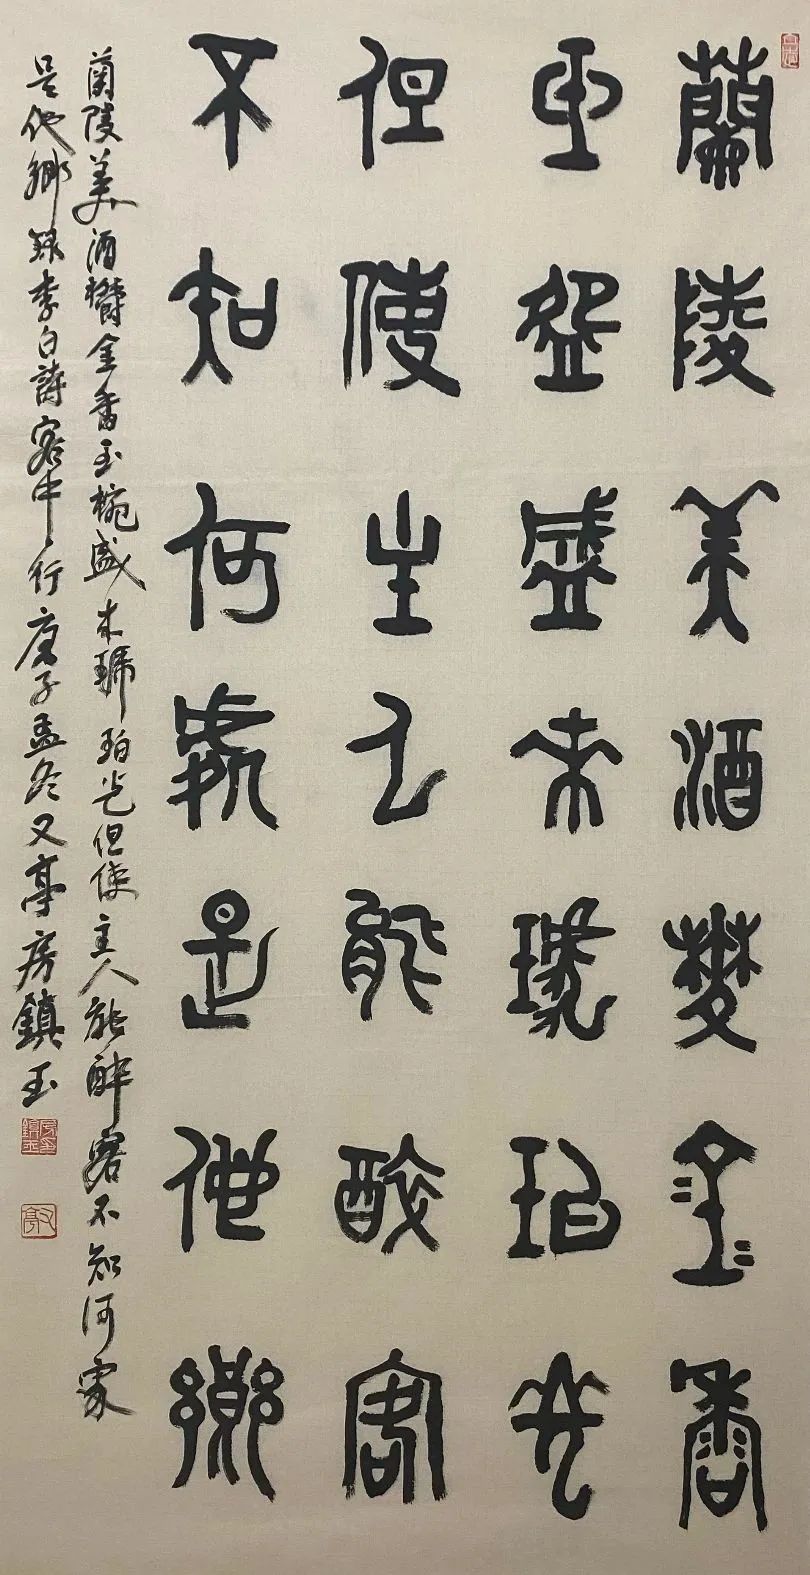 蘭陵美酒鬱金香
玉盌盛來琥珀光
但使主人能醉客
不知何處是他鄉
蘭陵美酒鬱金香玉椀盛來琥珀光但使主人能醉客不知何家
是他鄉 錄李白詩客中行 庚子孟冬又亭房鎮玉